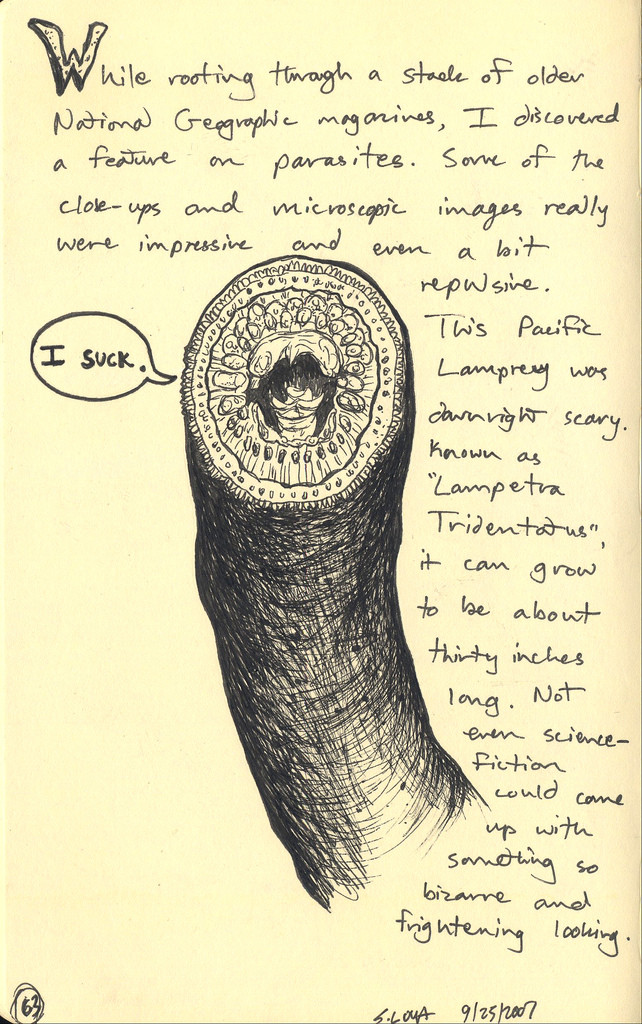 While rooting through a stack of older
National Geographic magazines, I discovered
a feature on parasites. Some of the
close-ups and microscopic images really
were impressive and even a bit
repulsive.
I SUCK.
This Pacific
Lamprey was
downright scary.
Known as
"Lampetra
Tridentatus",
it can grow
to be about
thirty inches
long. Not
even science-
fiction
could come
up with
something so
bizarre and
frightening looking.
63
S.LOYA 9/25/2007